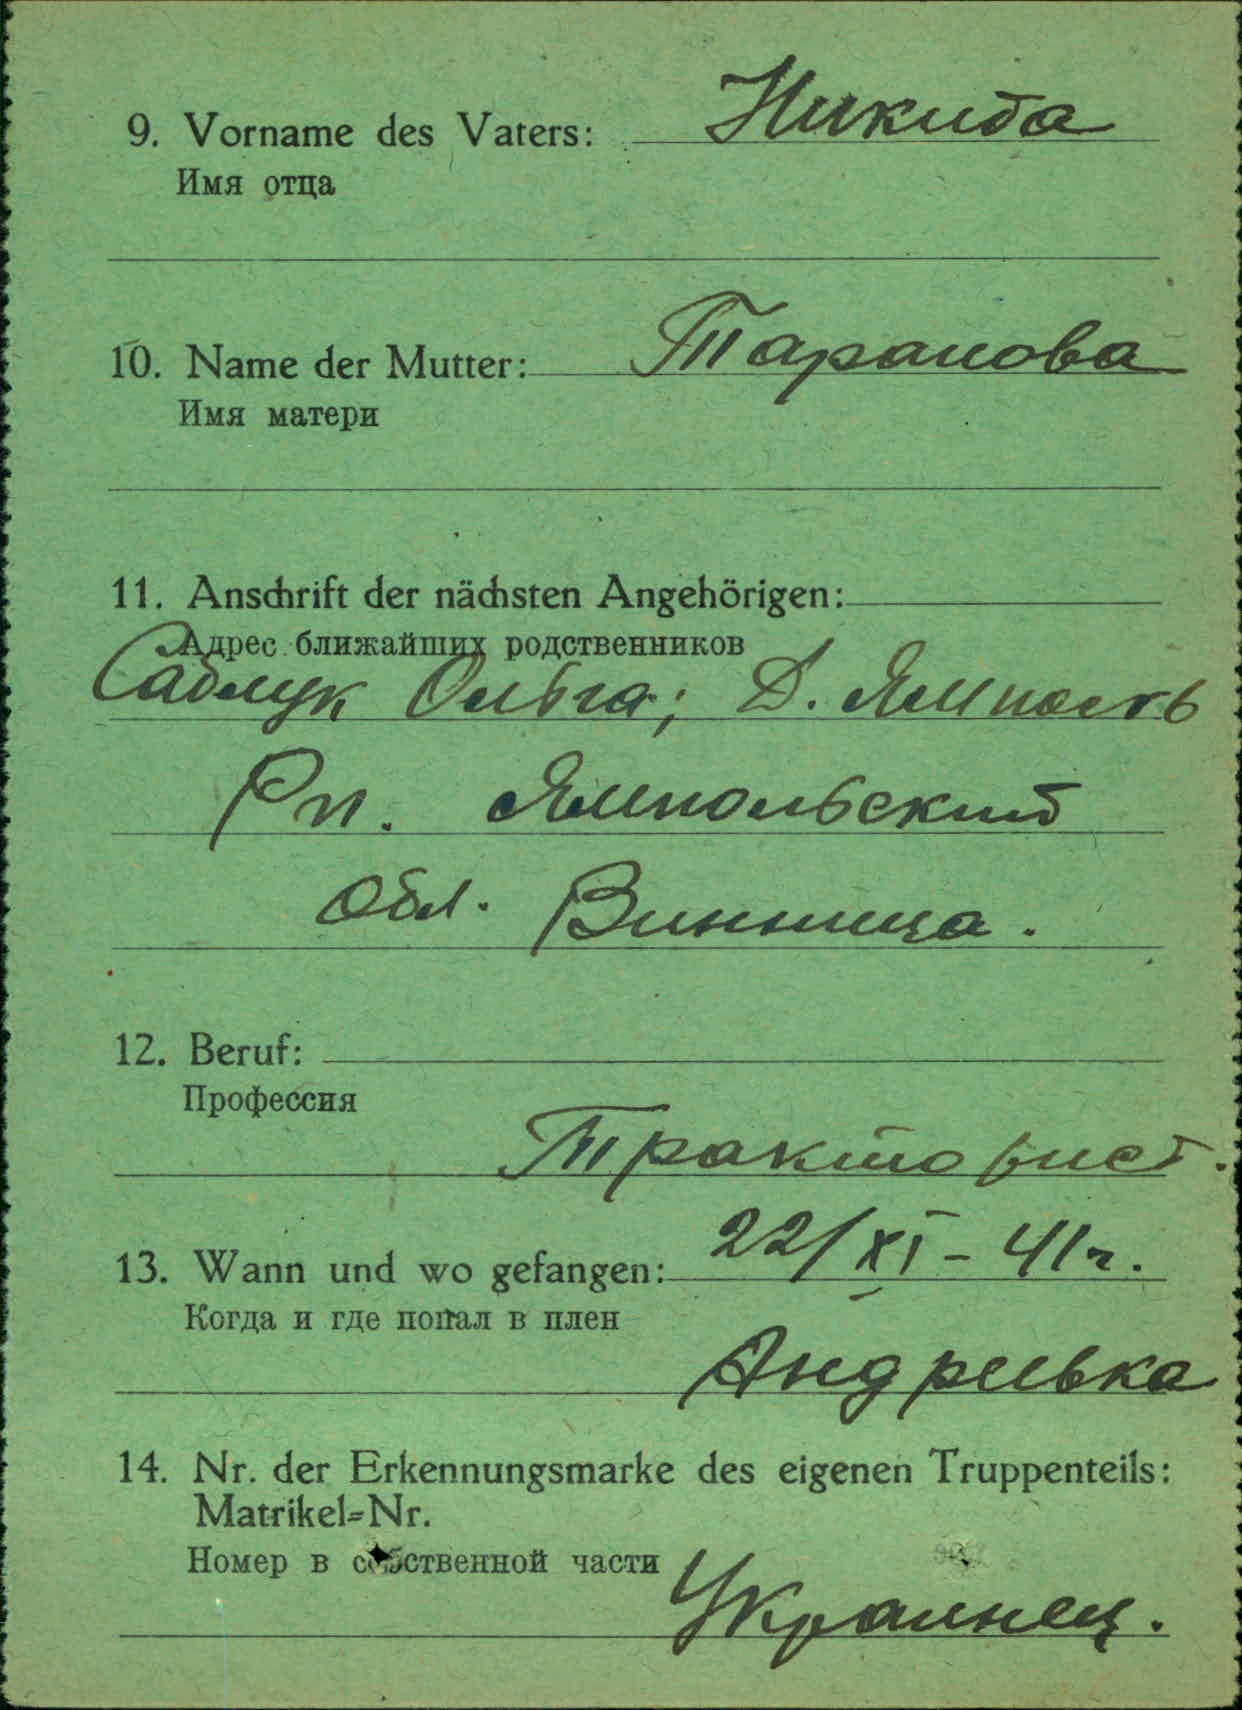 9. Vorname des Vaters: Никита
Имя отца
10. Name der Mutter: Таранова
Имя матери
11. Anschrift der nächsten Angehörigen:
Адрес ближайших родственников
Саблук Ольга; Д. Ямполь
Рп. Ямпольский
Обл. Винница.
12. Beruf:
Профессия
Тракторист.
13. Wann und wo gefangen: 22/XI - 41г.
Когда и где попал в плен
Андреевка
14. Nr. der Erkennungsmarke des eigenen Truppenteils:
Matrikel=Nr.
Номер в собственной части
Украинец.